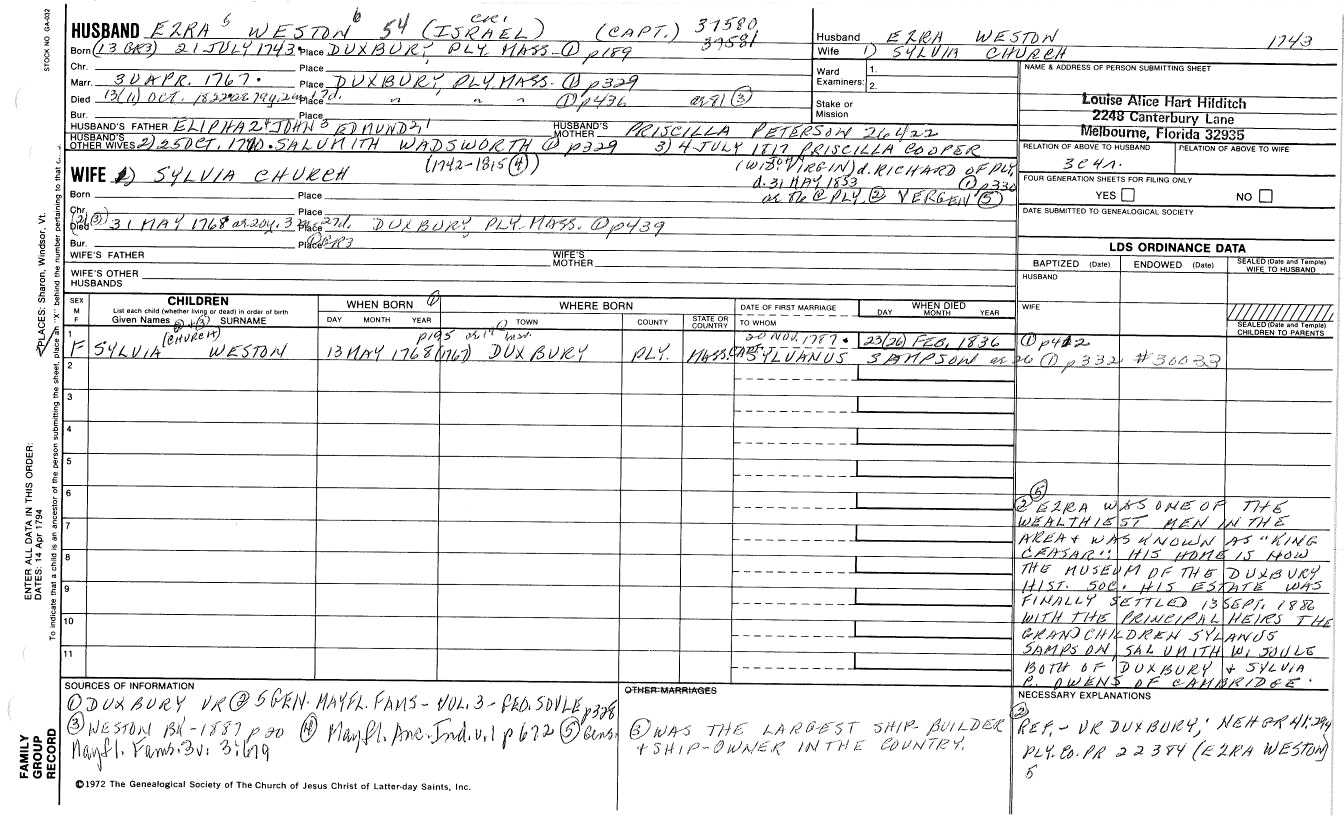 STOCK NO. GA-032
HUSBAND EZRA 5 WESTON 6 54 (ISRAEL) (CAPT.) 37580
37581
Born (13 GR3) 21 JULY 1743. Place DUXBURY, PLY. MASS. ① p189
Chr. Place
Marr. 30 APR. 1767. Place DUXBURY, PLY. MASS. ① p329
Died 13(11) OCT. 1822 Place " " " ① p436 ae 81 ③
Bur. Place
HUSBAND'S FATHER ELIPHAZ 4 JOHN 3 EDMUND 2 1 HUSBAND'S MOTHER PRISCILLA PETERSON 26422
HUSBAND'S OTHER WIVES 2) 25 OCT. 1770. SALUMITH WADSWORTH ① p329 3) 4 JULY 1817 PRISCILLA COOPER
(1742-1815 ④) (WID. OF VIRGIN) d. RICHARD OF PLY.
WIFE 1) SYLVIA CHURCH
d. 31 MAY 1853 ① p330
Born Place
@ PLY. ② VERGEN ⑤
Chr. Place
(2)(3) Died 31 MAY 1768 ae 20y. 3m. 27d. Place DUXBURY, PLY. MASS. ① p439
Bur. Place PCR3
WIFE'S FATHER WIFE'S MOTHER
WIFE'S OTHER HUSBANDS
Husband EZRA WESTON 1743
Wife 1) SYLVIA CHURCH
Ward 1.
Examiners: 2.
Stake or Mission
NAME & ADDRESS OF PERSON SUBMITTING SHEET
Louise Alice Hart Hilditch
2248 Canterbury Lane
Melbourne, Florida 32935
RELATION OF ABOVE TO HUSBAND RELATION OF ABOVE TO WIFE
3C4R.
FOUR GENERATION SHEETS FOR FILING ONLY
YES NO
DATE SUBMITTED TO GENEALOGICAL SOCIETY
LDS ORDINANCE DATA
BAPTIZED (Date) ENDOWED (Date) SEALED (Date and Temple) WIFE TO HUSBAND
HUSBAND
WIFE
SEALED (Date and Temple) CHILDREN TO PARENTS
SEX M F CHILDREN WHEN BORN ① WHERE BORN DATE OF FIRST MARRIAGE WHEN DIED
List each child (whether living or dead) in order of birth
Given Names ② + ③ SURNAME DAY MONTH YEAR TOWN COUNTY STATE OR COUNTRY TO WHOM DAY MONTH YEAR
1 (CHURCH) p195 20 NOV. 1787. 23(26) FEB. 1836 ① p442
F SYLVIA WESTON 13 MAY 1768 (1767) DUXBURY PLY. MASS. CAPT. SYLVANUS SAMPSON ae 26 ① p332 #30033
2
3
4
5
6
7
8
9
10
11
② ⑤ EZRA WAS ONE OF THE
WEALTHIEST MEN IN THE
AREA & WAS KNOWN AS "KING
CEASAR". HIS HOME IS NOW
THE MUSEUM OF THE DUXBURY
HIST. SOC. HIS ESTATE WAS
FINALLY SETTLED 13 SEPT. 1886
WITH THE PRINCIPAL HEIRS THE
GRANDCHILDREN SYLANUS
SAMPSON, SALUMITH W. SOULE
BOTH OF DUXBURY & SYLVIA
P. OWENS OF CAMBRIDGE.
SOURCES OF INFORMATION
① DUXBURY VR ② 5 GEN. MAYFL. FAMS - VOL. 3 - GEO. SOULE p328
③ WESTON BK - 1887 p 20 ④ Mayfl. Anc. Ind. v. 1 p 672 ⑤ Gens.
Mayfl. Fams. 3v: 3:679
OTHER MARRIAGES
③ WAS THE LARGEST SHIP-BUILDER
& SHIP-OWNER IN THE COUNTRY.
NECESSARY EXPLANATIONS
② REF. - VR DUXBURY; NEHGR 41:294
PLY. CO. PR 22384 (EZRA WESTON)
5
©1972 The Genealogical Society of The Church of Jesus Christ of Latter-day Saints, Inc.
FAMILY GROUP RECORD
ENTER ALL DATA IN THIS ORDER:
DATES: 14 Apr 1794
PLACES: Sharon, Windsor, Vt.
To indicate that a child is an ancestor of the person submitting the sheet, place an "X" behind the number pertaining to that